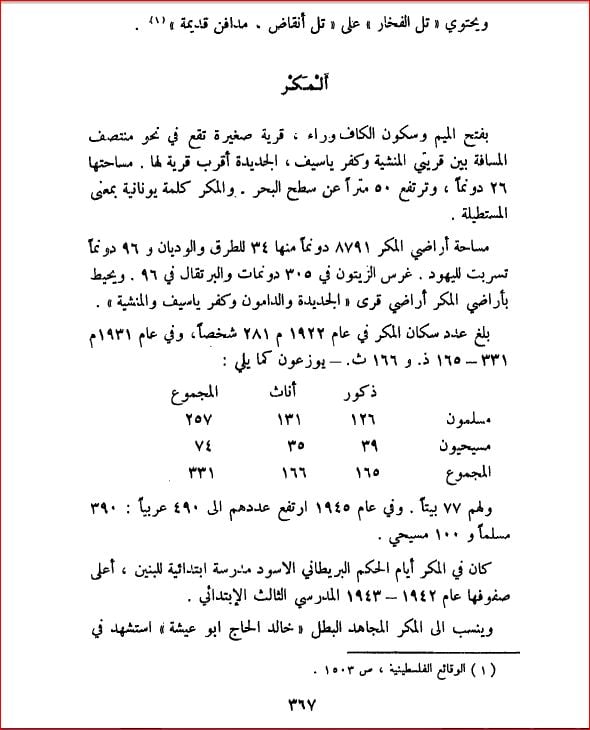 ويحتوي « تل الفخار » على « تل أنقاض . مدافن قديمة » (١) .
ألمَكْر
بفتح الميم وسكون الكاف وراء ، قرية صغيرة تقع في نحو منتصف
المسافة بين قريتي المنشية وكفر ياسيف ، الجديدة أقرب قرية لها . مساحتها
٢٦ دونماً ، وترتفع ٥٠ متراً عن سطح البحر . والمكر كلمة يونانية بمعنى
المستطيلة .
مساحة أراضي المكر ٨٧٩١ دونماً منها ٣٤ للطرق والوديان و ٩٦ دونماً
تسربت لليهود . غرس الزيتون في ٣٠٥ دونمات والبرتقال في ٩٦ . ويحيط
بأراضي المكر أراضي قرى « الجديدة والدامون وكفر ياسيف والمنشية » .
بلغ عدد سكان المكر في عام ١٩٢٢ م ٢٨١ شخصاً، وفي عام ١٩٣١م
٣٣١ – ١٦٥ ذ. و ١٦٦ ث. – يوزعون كما يلي :
ذكور أناث المجموع
مسلمون ١٢٦ ١٣١ ٢٥٧
مسيحيون ٣٩ ٣٥ ٧٤
المجموع ١٦٥ ١٦٦ ٣٣١
ولهم ٧٧ بيتاً . وفي عام ١٩٤٥ ارتفع عددهم الى ٤٩٠ عربياً : ٣٩٠
مسلماً و ١٠٠ مسيحي .
كان في المكر أيام الحكم البريطاني الاسود مدرسة ابتدائية للبنين ، أعلى
صفوفها عام ١٩٤٢ – ١٩٤٣ المدرسي الثالث الإبتدائي .
وينسب الى المكر المجاهد البطل « خالد الحاج ابو عيشة » استشهد في
(١) الوقائع الفلسطينية ، ص ١٥٠٣ .
٣٦٧